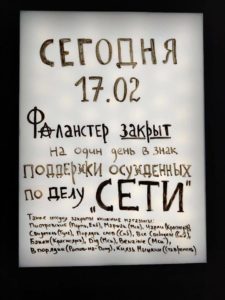 СЕГОДНЯ
17.02
Фаланстер закрыт
на один день в знак
поддержки осужденных
по делу „СЕТИ"
Также сегодня закрыты книжные магазины:
Пиотровский (Пермь, Екб), Маршак (Мск),
Свидетель (Тула), Порядок слов (СПб), Все (СПб)
Бакен (Красноярск), Dig (Мск), (Мск),
В порядке (Ростов-на-Дону), Князь Мышкин (Ставрополь)